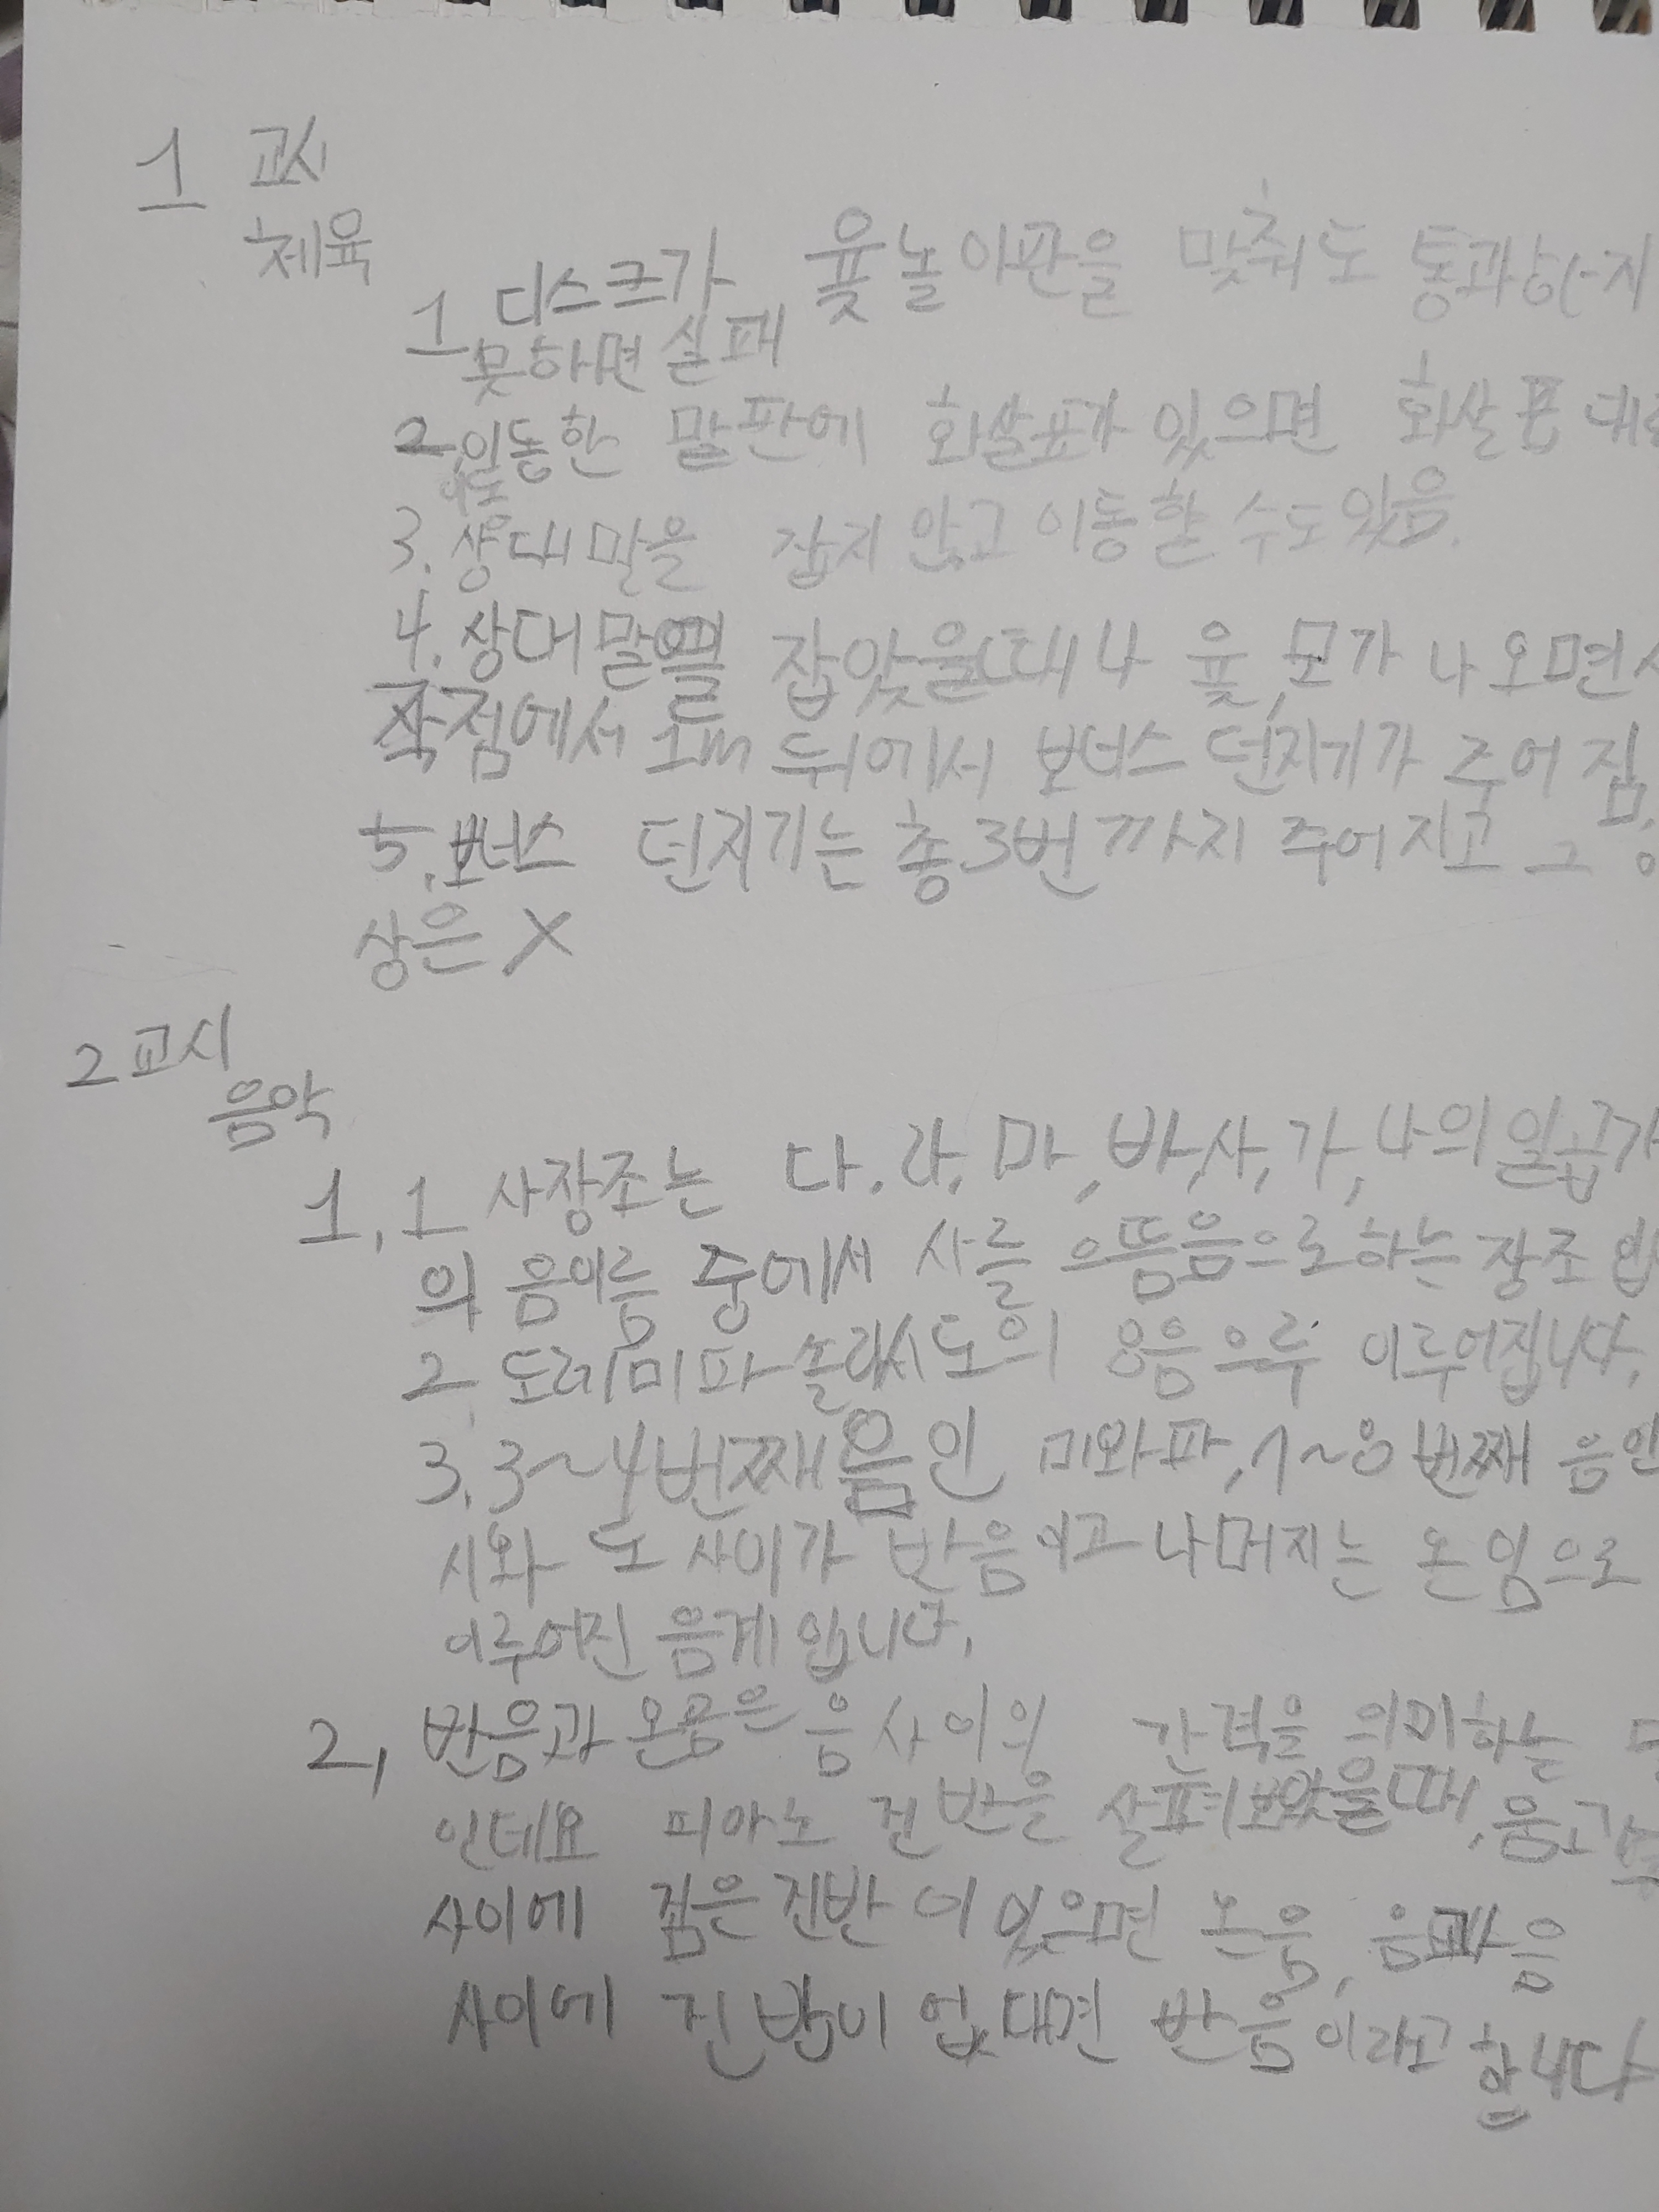 1 교시
체육
1 디스크가 윷놀이판을 맞춰도 통과하지
못하면 실패
2. 이동한 말판에 화살표가 있으면 화살표 대로
이동
3. 상대 말을 잡지 않고 이동할 수도 있음.
4. 상대 말을 잡았을때나 윷, 모가 나오면 시
작점에서 1m 뒤에서 보너스 던지기가 주어짐.
5. 보너스 던지기는 총 3번까지 주어지고 그 이
상은 X
2교시
음악
1, 1 사장조는 다, 라, 마, 바, 사, 가, 나의 일곱가
의 음이름 중에서 사를 으뜸음으로하는 장조 입
2. 도레미파솔라시도의 8음으루 이루어집니다.
3. 3~4번째 음인 미와파, 7~8번째 음인
시와 도 사이가 반음이고 나머지는 온임으로
이루어진 음계입니다.
2, 반음과 온음은 음 사이의 간격을 의미하는
인데요 피아노 건반을 살펴보았을때, 음과
사이에 검은 진반이 있으면 온음, 음과 음
사이에 진반이 없대면 반음이라고 합니다